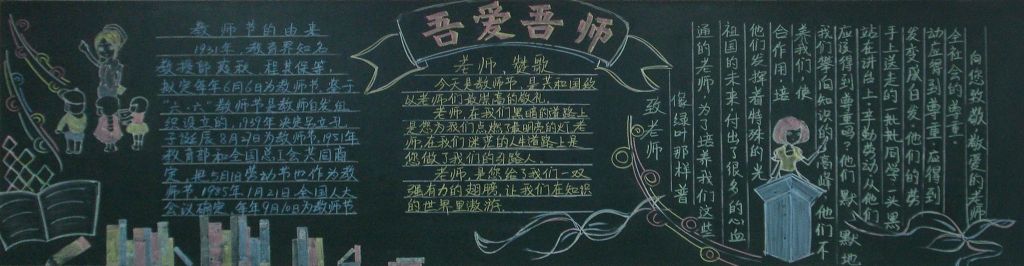 吾爱吾师
教师节的由来
1931年,教育界知名
教授邰爽秋、程其保等,
拟定每年6月6日为教师节。鉴于
"六·六"教师节是教师自发组
织设立的,1939年决定另立孔
子诞辰8月27日为教师节,1951年
教育部和全国总工会共同商
定,把5月1日劳动节也作为教
师节。1985年1月21日全国人大
会议确定,每年9月10日为教师节
老师,赞歌
今天是教师节,是共和国致
以老师们最崇高的敬礼。
老师,在我们黑暗的道路上
是您为我们点燃了最明亮的灯。老
师,在我们迷茫的人生道路上是
您做了我们的引路人。
老师,是您给了我们一双
强有力的翅膀,让我们在知识
的世界里遨游。
向您致敬,敬爱的老师
全社会的尊重。
动应得到尊重,应得到
发变成白发,他们的劳
手上送走的一批批同学,一头黑
站在讲台上,辛勤劳动,从他们
应该得到尊重吗?他们默默地
我们攀向知识的高峰,他们不
美我们,使
合作用途
他们发挥着特殊的光
祖国的未来付出了很多的心血
通的老师,为了培养我们这些
像绿叶那样普
致老师